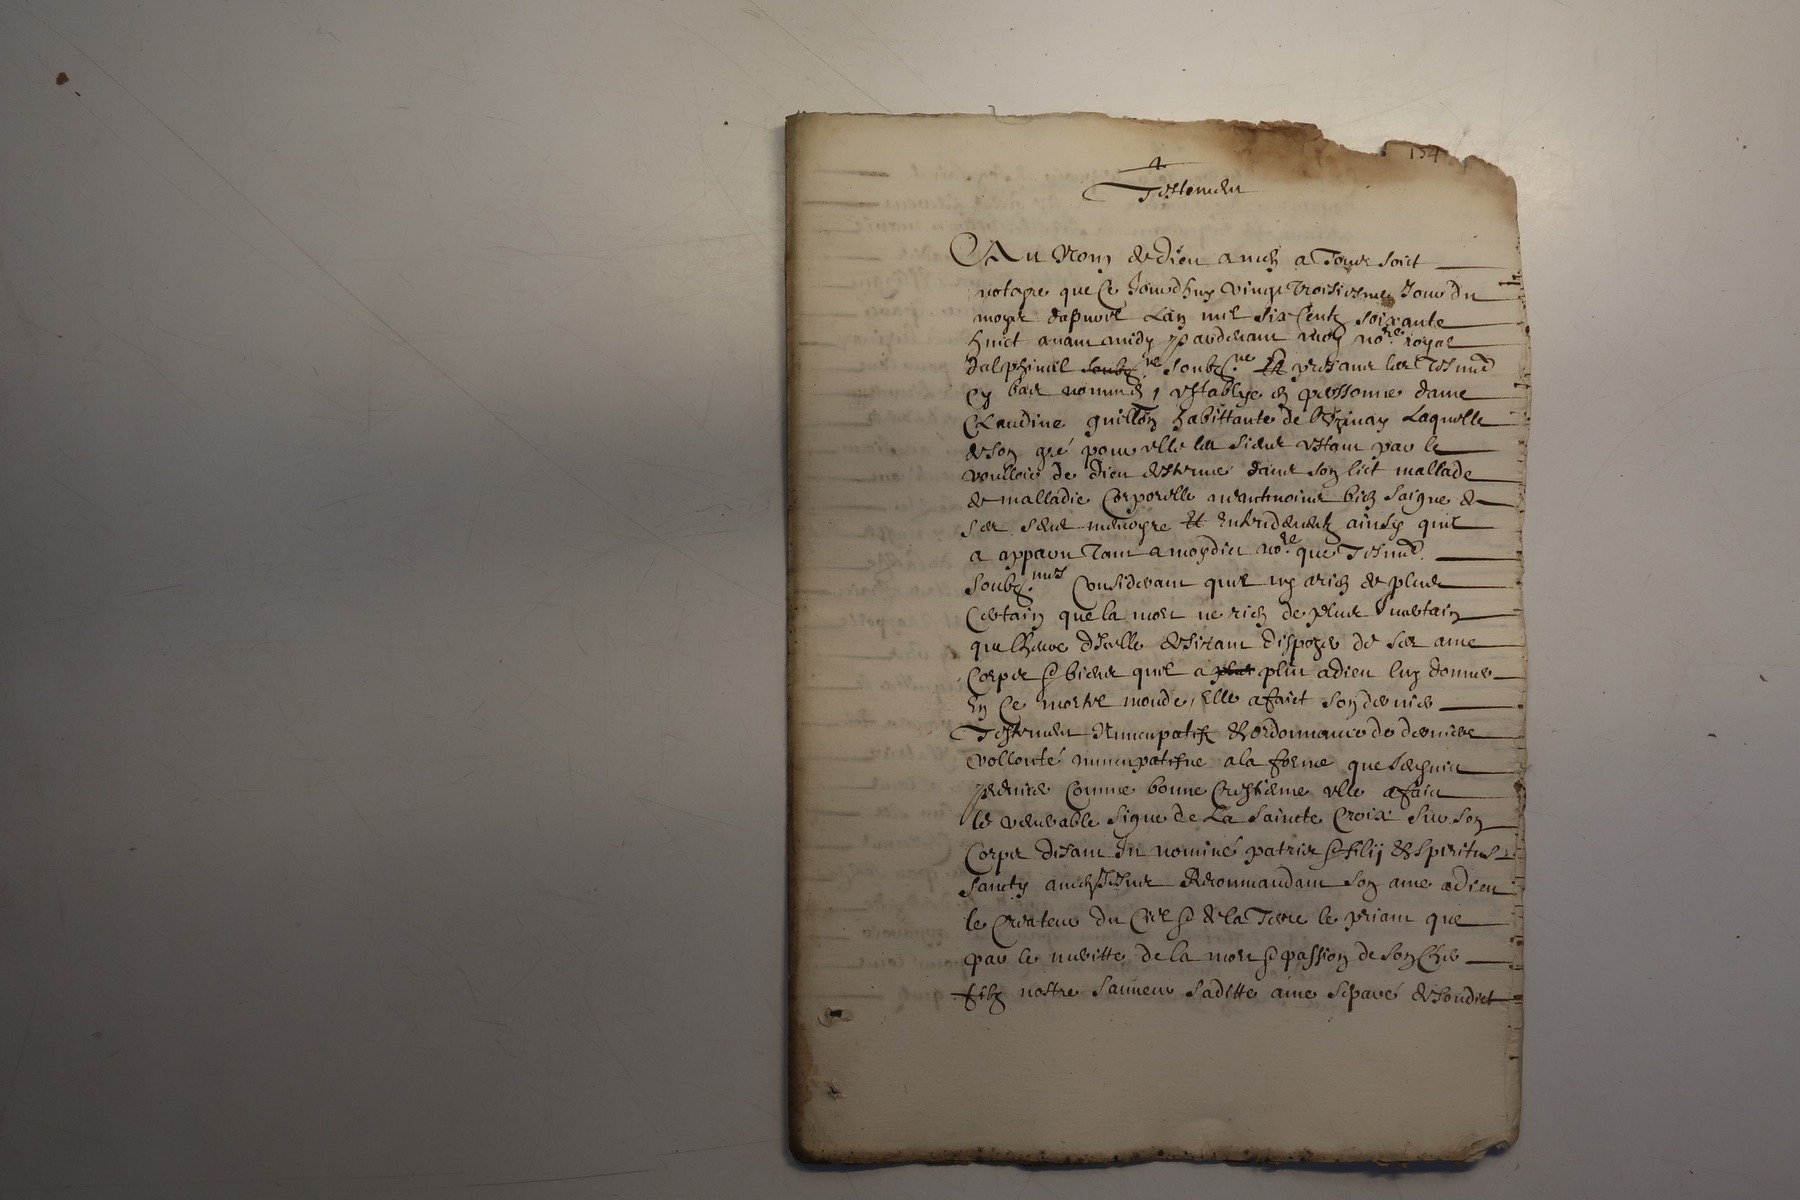 134
Testement
Au Nom de Dieu amen a Tous soict
notoyre que ce Jourdhuy vingt troisiesme Jour du
moys dapvril Lan mil six centz soixante
huict avant midy pardevant moy no.re royal
dalphinal soubz.né soubz.né Et presans les Tesmo.
cy bas nommés, establye en personne dame
Claudine guillon habittante de laquelle
de son gré pour elle les siens estant par le
voulloir de dieu destenue dans son lict mallade
de malladie Corporelle neantmoins bien saigne de
ses sens memoyre Et Entendement ainsy quil
a apparu Tant a moydict no.re que Tesmo.
soubz.nés Considerant quil ny arien de plus
Certain que la mort ne rien de plus Incertain
que lheure dicelle desirant dispozer de ses ame
Corps & biens quil a plus pleu adieu luy donner
En ce mortel monde, Elle afaict son dernier
Testement Nuncupatif & ordonnance de derniere
vollonté nuncupatifve ala forme que sensuit
premier Comme bonne Crestienne elle afaict
le venerable signe de La saincte Croix sur son
Corps disant In nominé patris & filij & spiritus
sancty amen Jesus Recommandant son ame adieu
le Createur du Ciel & de la Terre le priant que
par le meritte de la mort & passion de son Cher
filz nostre sauveur saditte ame separé desondict